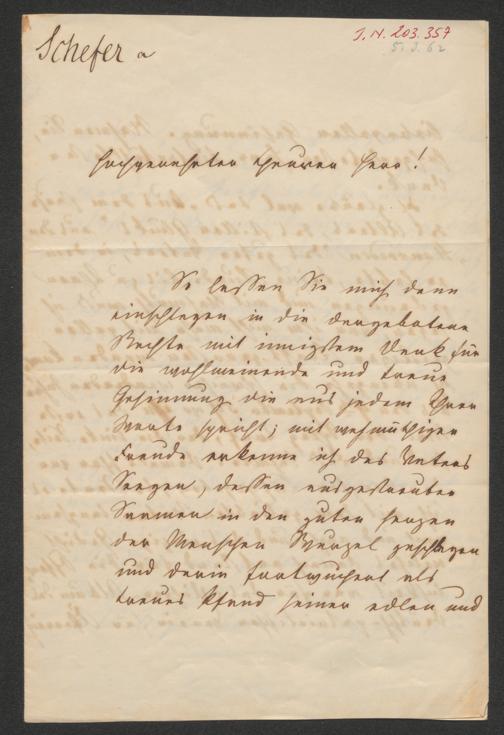 Schefer a
I.N. 203.357
5.3.62
Hochgeehrter theurer Herr!
So lassen Sie mich denn
einschlagen in die dargebotene
Rechte mit innigstem Dank für
die wohlmeinende und treue
Gesinnung die aus jedem Ihrer
Worte spricht; mit wehmüthiger
Freude erkenne ich des Vaters
Segen, dessen ausgestreuter
Saamen in den guten Herzen
der Menschen Wurzel geschlagen
und darin fortwuchert als
treues Pfand seiner edlen und